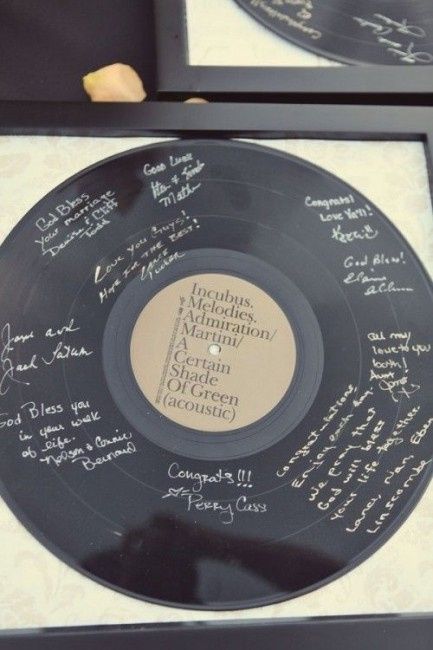 Congratulations!!
God Bless
your marriage
Denise & Cliff
Todd
Good Luck
Math
Love you Guys!
Hope I'm the Best!
Congrats!
Love Ya'll!
Kerri
God Bless!
Elaine
Incubus.
Melodies.
Admiration/
Martini/
A
Certain
Shade
Of Green
(acoustic)
all my
love to you
both!
Jane and
Jack
God Bless you
in your walk
of life.
Nelson & Connie
Bernard
Congratulations,
Enjoy each day.
We pray that
God will bless
your life together
Lance, Nan,
Linscombe
Congrats!!!
Perry Cass